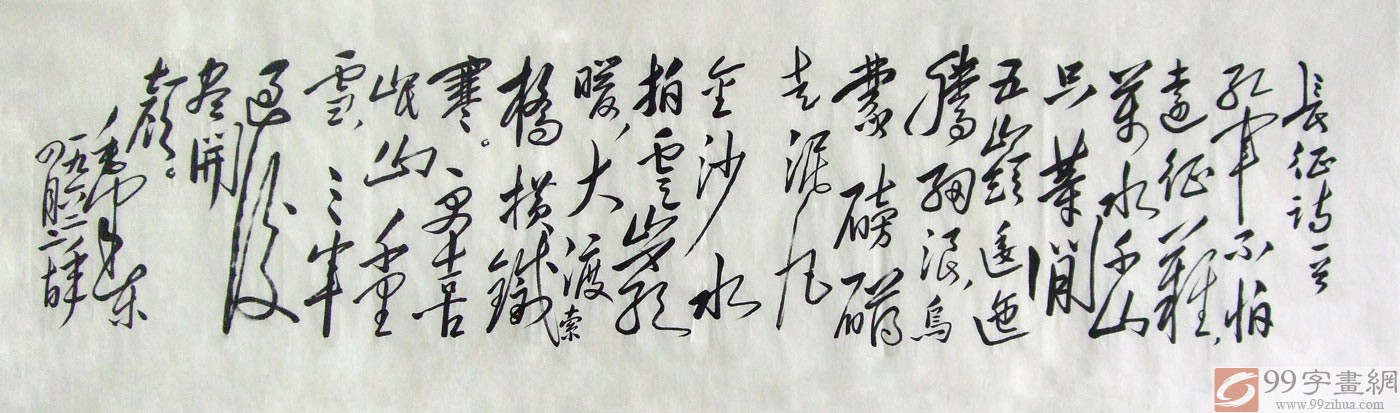 長征诗一首
红军不怕
遠征難，
萬水千山
只等閒
五嶺逶迤
騰細浪，烏
蒙磅礴
走泥丸
金沙水
拍雲崖
暖，大渡
橋横鐵索
寒。更喜
岷山千里
雪，三军
过後
盡開
颜。
毛泽东
一九六二年
四月二十日
99字畫網
www.99zihua.com